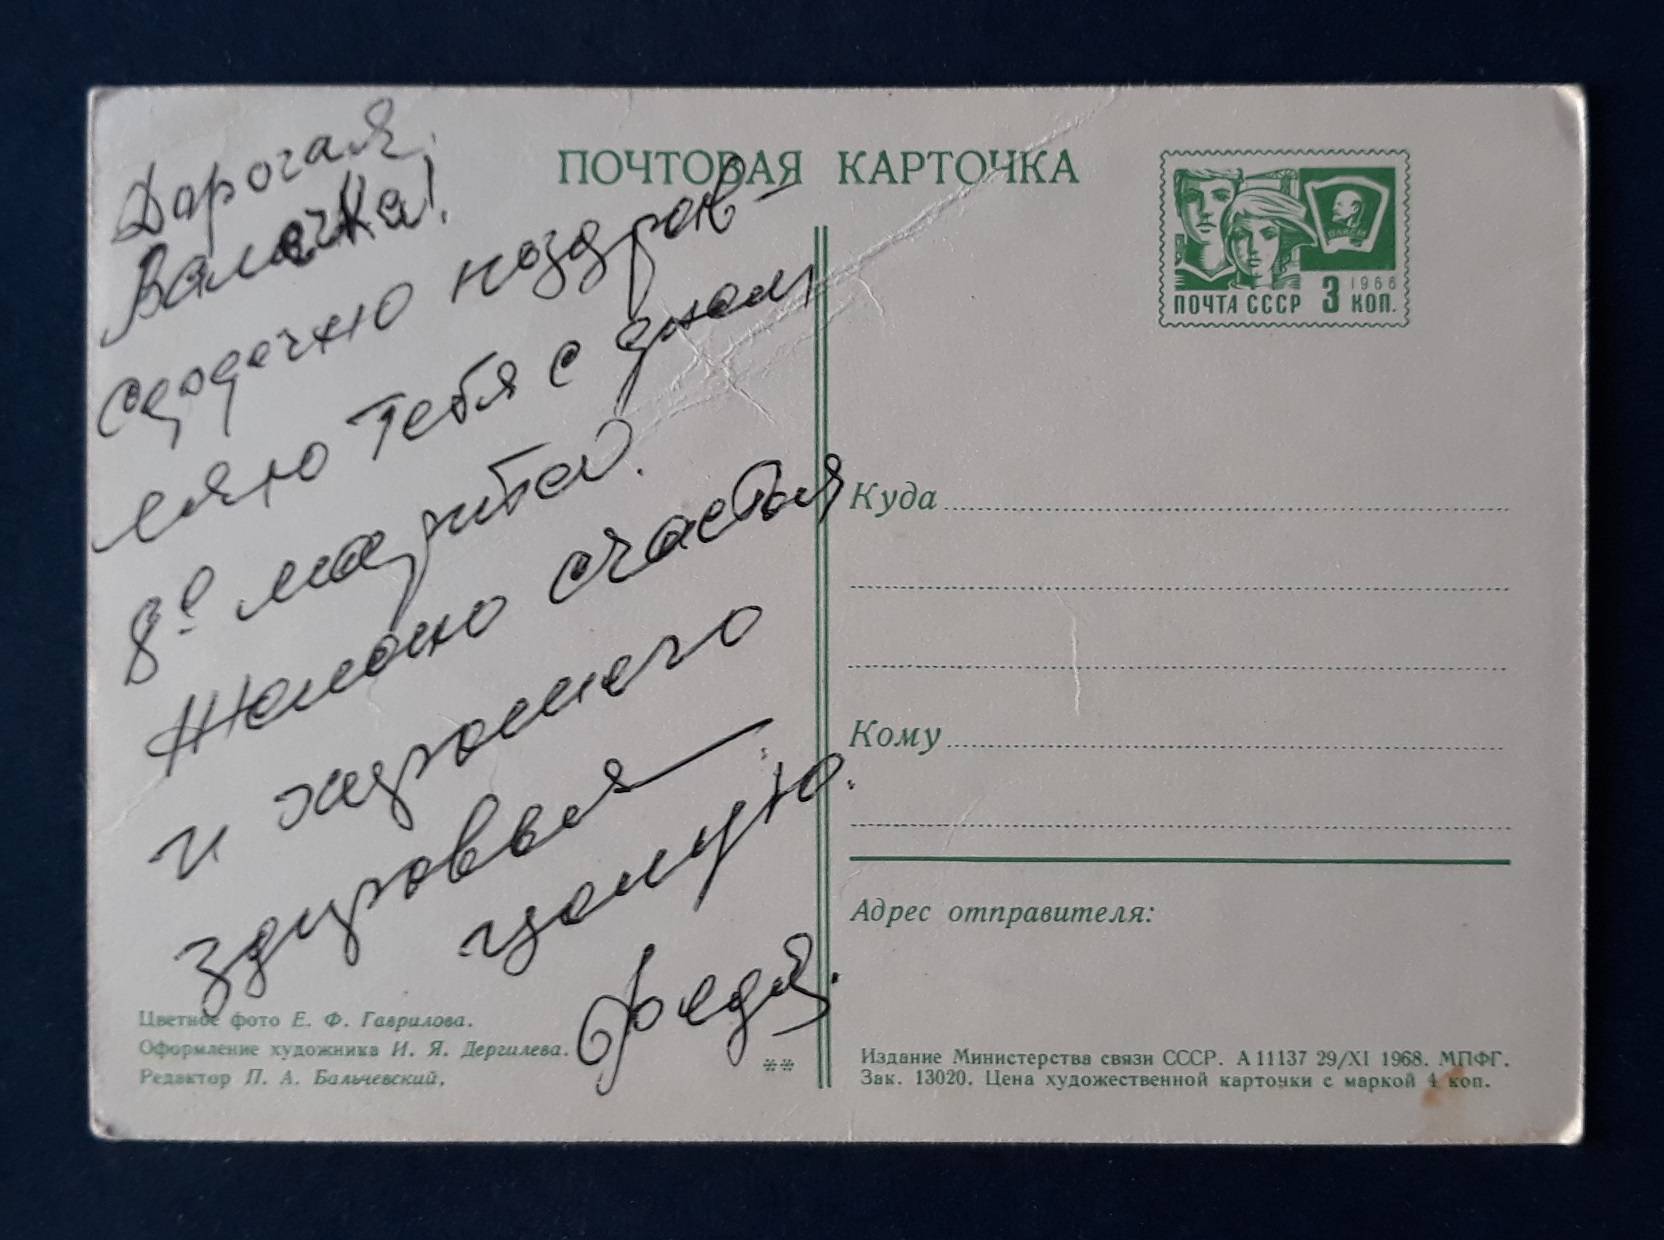 Дорогая
Валечка!
сердечно поздрав-
ляю Тебя с днем
8е марта.
Желаю счастья
и хорошего
здоровья
целую.
Федя.
ПОЧТОВАЯ КАРТОЧКА
ВЛКСМ
1966
ПОЧТА СССР 3 КОП.
Куда
Кому
Адрес отправителя:
Цветное фото Е. Ф. Гаврилова.
Оформление художника И. Я. Дергилева.
Редактор П. А. Бальчевский.
**
Издание Министерства связи СССР. А 11137 29/XI 1968. МПФГ.
Зак. 13020. Цена художественной карточки с маркой 4 коп.